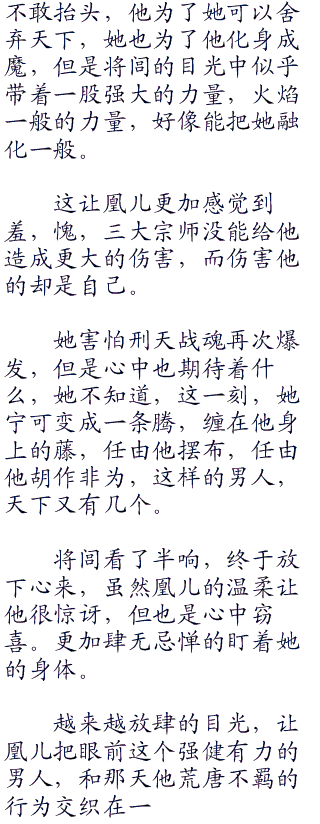 不敢抬头，他为了她可以舍
弃天下，她也为了他化身成
魔，但是将闾的目光中似乎
带着一股强大的力量，火焰
一般的力量，好像能把她融
化一般。
这让凰儿更加感觉到
羞，愧，三大宗师没能给他
造成更大的伤害，而伤害他
的却是自己。
她害怕刑天战魂再次爆
发，但是心中也期待着什
么，她不知道，这一刻，她
宁可变成一条腾，缠在他身
上的藤，任由他摆布，任由
他胡作非为，这样的男人，
天下又有几个。
将闾看了半响，终于放
下心来，虽然凰儿的温柔让
他很惊讶，但也是心中窃
喜。更加肆无忌惮的盯着她
的身体。
越来越放肆的目光，让
凰儿把眼前这个强健有力的
男人，和那天他荒唐不羁的
行为交织在一